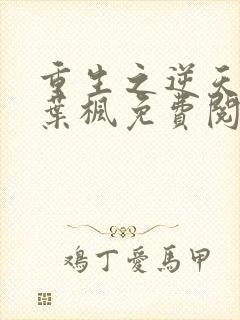 重生之逆天
葉楓免費閱
鴻丁愛馬甲